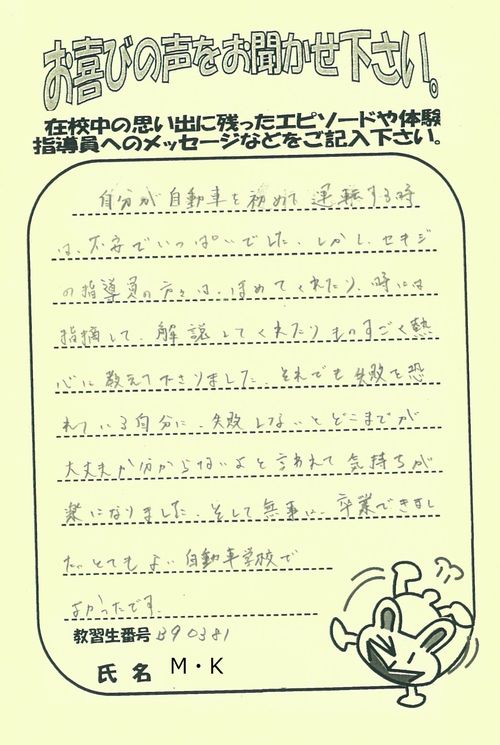 お喜びの声をお聞かせ下さい。
在校中の思い出に残ったエピソードや体験
指導員へのメッセージなどをご記入下さい。
自分が自動車を初めて運転する時
は、不安でいっぱいでした。しかし、セキジ
の指導員の方々は、ほめてくれたり、時には
指摘して、解説してくれたりものすごく熱
心に教えて下さりました。それでも失敗を恐
れている自分に、失敗しないとどこまでが
大丈夫か分からないよと言われて気持ちが
楽になりました。そして無事に、卒業できまし
た。とてもよい自動車学校で
よかったです。
教習生番号 B90381
氏名 M・K